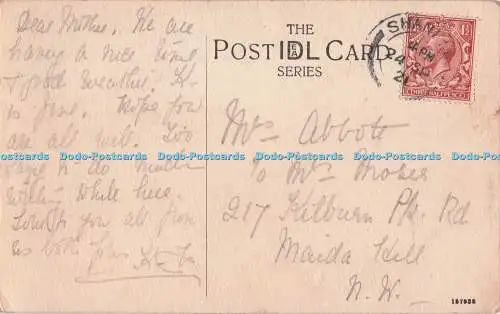 Dear Mother. We are
having a nice time
& good weather. It
is fine. Hope you
are all well. Too
to do much
while here.
Love to you all from
us both
THE
POST IDEAL CARD
SERIES
SWAN
24 SP
THREE HALFPENCE
Mrs Abbott
c/o Mrs Moses
217 Kilburn Pk. Rd
Maida Hill
N.W.
Dodo-Postcards Dodo-Postcards Dodo-Postcards Dodo-Postcards Dodo-Postcards Dodo-Postcards
157935